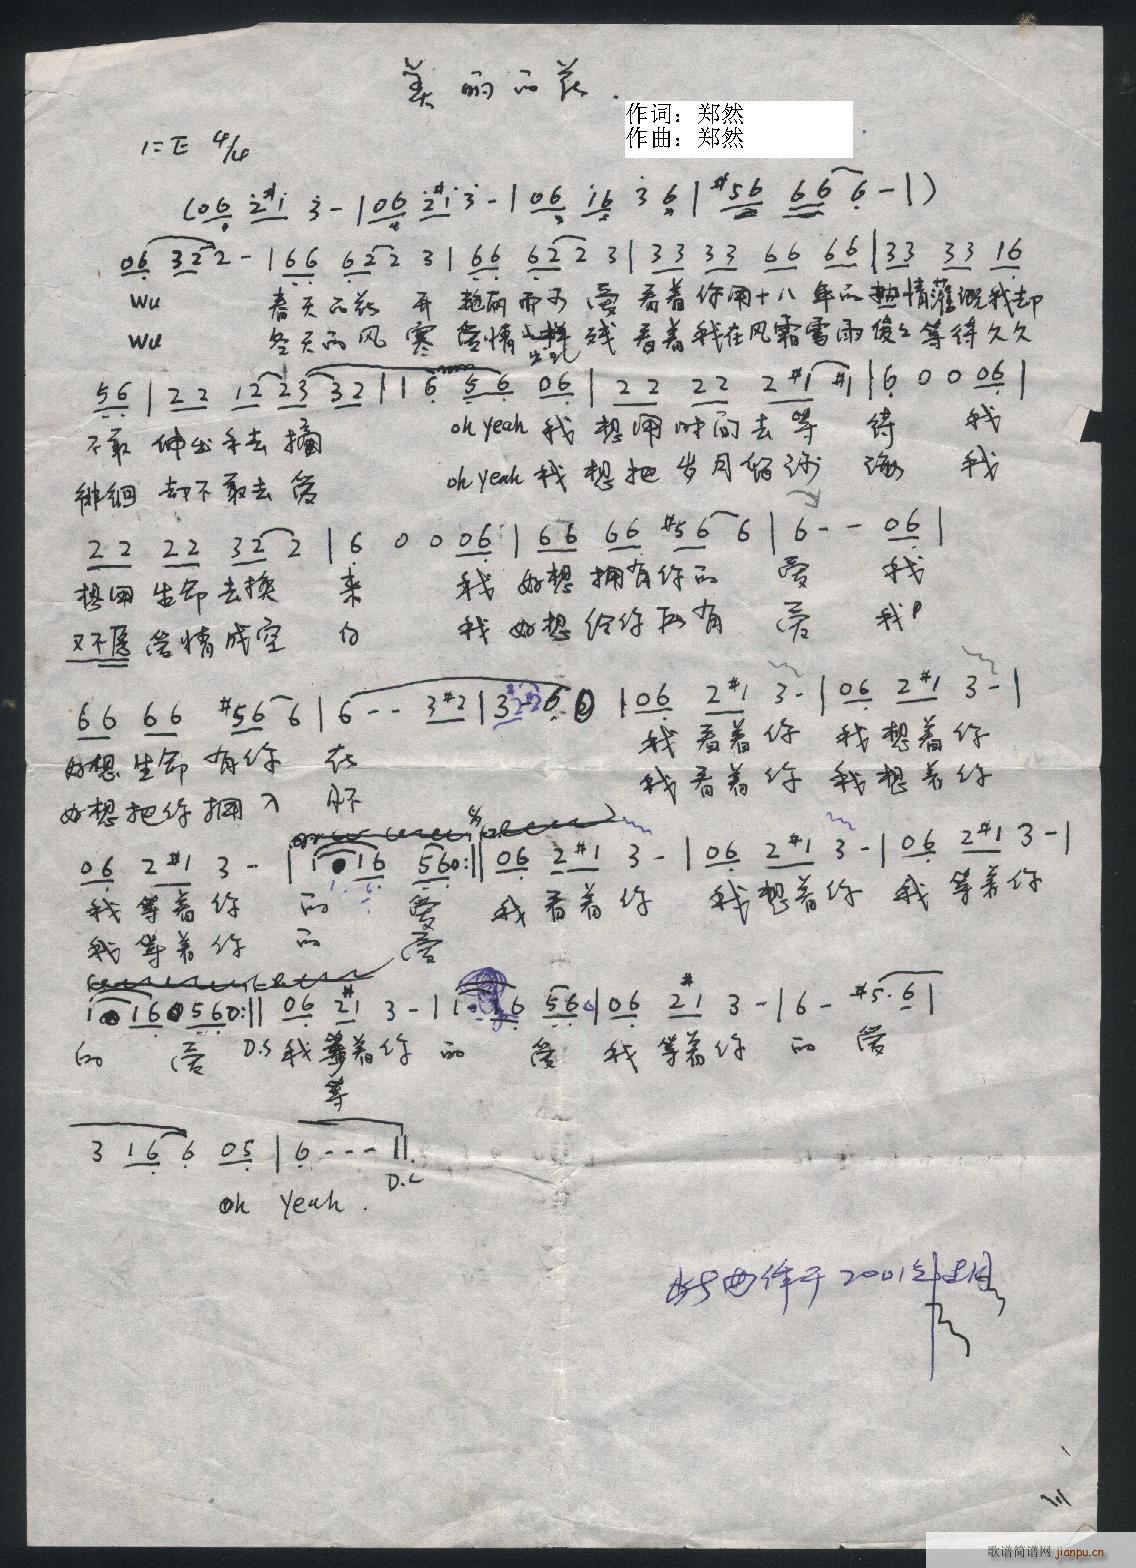 美丽的花.
作词：郑然
作曲：郑然
1=E 4/4
(06 2#1 3 - | 06 2#1 3 - | 06 16 3 6 | #56 66 6 - |)
06 32 2 - | 66 62 2 3 | 66 62 2 3 | 33 33 66 66 | 33 33 16
Wu 春天的花 开 艳丽而可 爱 看着你用十八年的热情灌溉我却
Wu 冬天的风 寒 爱情 残 看着我在风霜雷雨傻傻等待久久
56 | 22 12 23 32 | 1 6 56 06 | 22 22 2#1 #1 | 6 0 0 06 |
不敢 伸出手去 摘 oh yeah 我 想用时间去等 待 我
徘徊 却不敢去 爱 oh yeah 我 想把岁月留沙 海 我
22 22 32 2 | 6 0 0 06 | 66 66 #56 6 | 6 - - 06 |
想用生命去换 来 我 好想拥有你的 爱 我
又不愿爱情成空 白 我 好想给你所有 爱 我
66 66 #56 6 | 6 - - 3#2 | 3 6 0 | 06 2#1 3 - | 06 2#1 3 - |
好想生命有你 在 我看着你 我想着你
好想把你拥入 怀 我看着你 我想着你
06 2#1 3 - | 1 16 560 :|| 06 2#1 3 - | 06 2#1 3 - | 06 2#1 3 - |
我等着你 的 爱 我看着你 我想着你 我等着你
我等着你 的 爱
1 16 560 :|| 06 2#1 3 - | 1 6 56 | 06 2#1 3 - | 6 - #5. 6 |
的 爱 D.S 我等着你 的 爱 我等着你 的 爱
等
3 16 6 05 | 6 - - - ||
D.C
Oh Yeah.
此曲作于2001年
歌谱简谱网 jianpu.cn